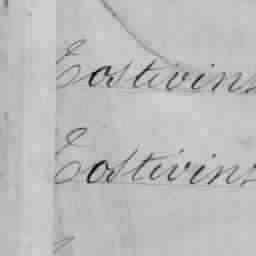 Eostivins
Eostivins